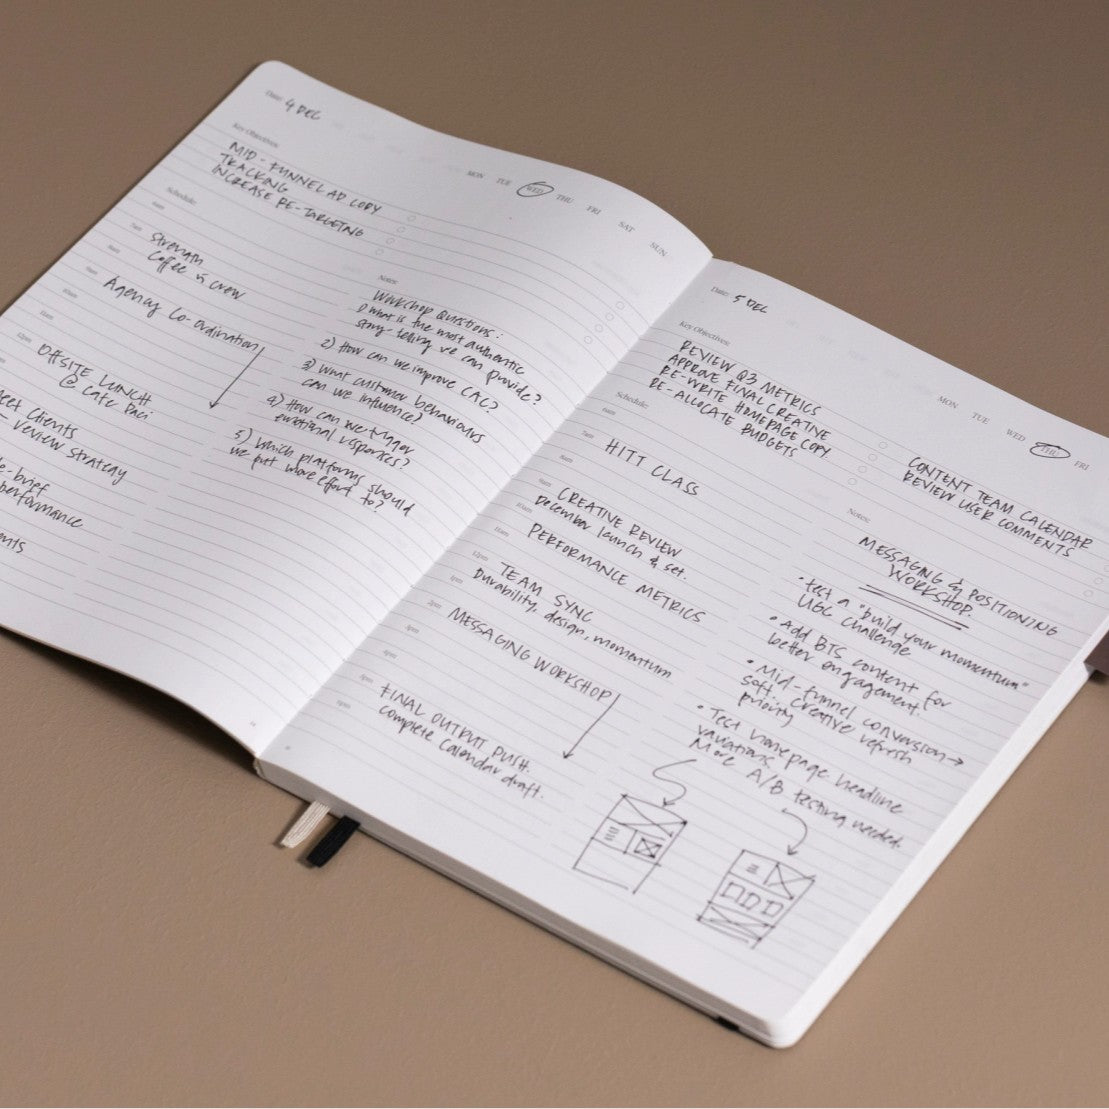 Date: 4 DEC
MON TUE WED THU FRI SAT SUN
Key Objectives:
MID-FUNNEL AD COPY
TRACKING
INCREASE RE-TARGETING
Schedule:
6am
7am Strength
8am Coffee w crew
9am Agency Co-ordination
10am
11am
12pm OFFSITE LUNCH
@ Cafe Paci
Meet Clients
- review strategy
De-brief
performance
Notes:
Workshop Questions:
1) What is the most authentic
story-telling we can provide?
2) How can we improve CAC?
3) What customer behaviours
can we influence?
4) How can we trigger
emotional responses?
5) Which platforms should
we put more effort to?
Date: 5 DEC
MON TUE WED THU FRI
Key Objectives:
REVIEW Q3 METRICS
APPROVE FINAL CREATIVE
RE-WRITE HOMEPAGE COPY
RE-ALLOCATE BUDGETS
CONTENT TEAM CALENDAR
REVIEW USER COMMENTS
Schedule:
6am
7am HITT CLASS
8am
9am CREATIVE REVIEW
10am December launch & set.
11am PERFORMANCE METRICS
12pm TEAM SYNC
1pm Durability, design, momentum
2pm MESSAGING WORKSHOP
3pm
4pm
5pm FINAL OUTPUT PUSH.
6pm complete Calendar draft.
Notes:
MESSAGING & POSITIONING
WORKSHOP.
• Test a "build your momentum"
UGC challenge
• Add BTS content for
better engagement.
• Mid-funnel conversion →
soft. Creative refresh
priority
• Test homepage headline
variations
More A/B testing needed.